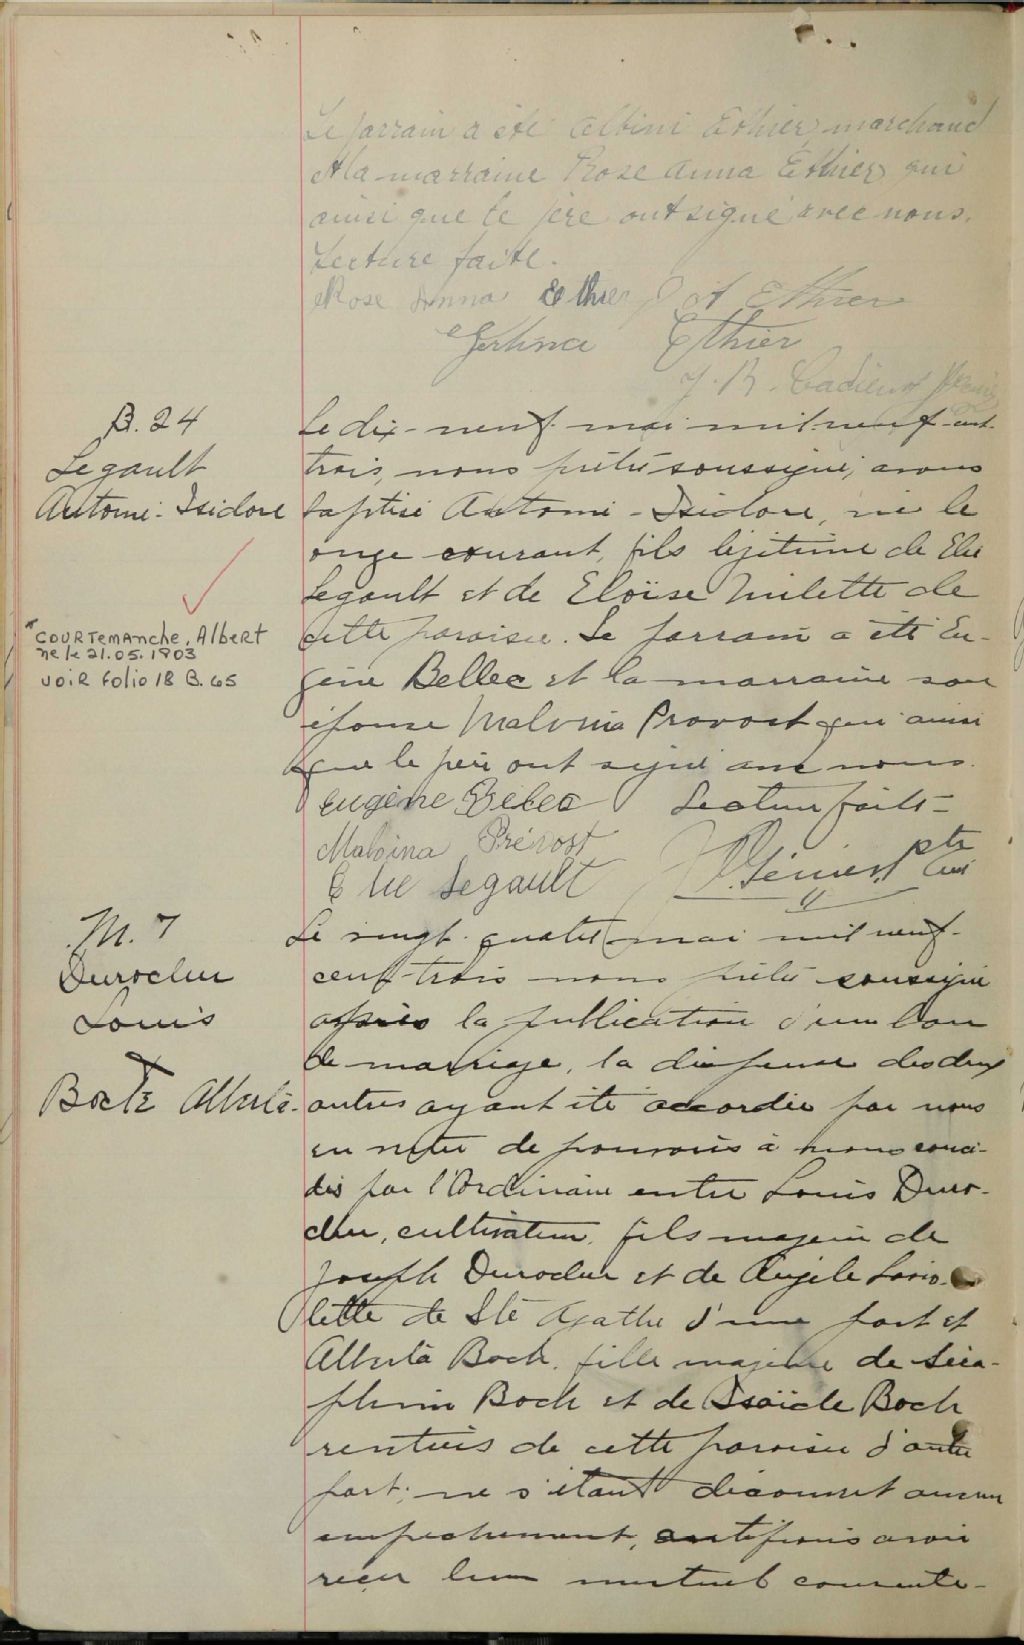 Le parrain a été Albini Ethier, marchand
et la marraine Rose Anna Ethier qui
ainsi que le père ont signé avec nous.
Lecture faite.
Rose Anna Ethier A Ethier
Ethier
J. R.
B. 24
Legault
Antoni-Isidore
COURTEMANCHE, Albert
né le 21.05.1903
voir folio 18 B. 65
Le dix-neuf mai mil neuf-cent
trois, nous prêtre soussigné, avons
baptisé Antoni-Isidore, né le
onze courant, fils légitime de Elie
Legault et de Eloïse Milette de
cette paroisse. Le parrain a été Eu-
gène Bellec et la marraine son
épouse Malvina Provost qui ainsi
que le père ont signé avec nous.
Eugène Bélec Lecture faite-
Malvina Prévost
Elie Legault Génier Ptr Curé
M. 7
Durocher
Louis
&
Bock Alberta.
Le vingt-quatre mai mil neuf-
cent-trois nous prêtre soussigné
après la publication d'un ban
de mariage, la dispense des deux
autres ayant été accordée par nous
en vertu de pouvoirs à nous concé-
dés par l'Ordinaire entre Louis Duro-
cher, cultivateur, fils majeur de
Joseph Durocher et de Angèle Lorio-
lette de Ste Agathe d'une part et
Alberta Bock, fille majeure de Séra-
phin Bock et de Isaïe Bock
rentiers de cette paroisse d'autre
part; ne s'étant découvert aucun
empêchement, certifions avoir
reçu leur mutuel consente-